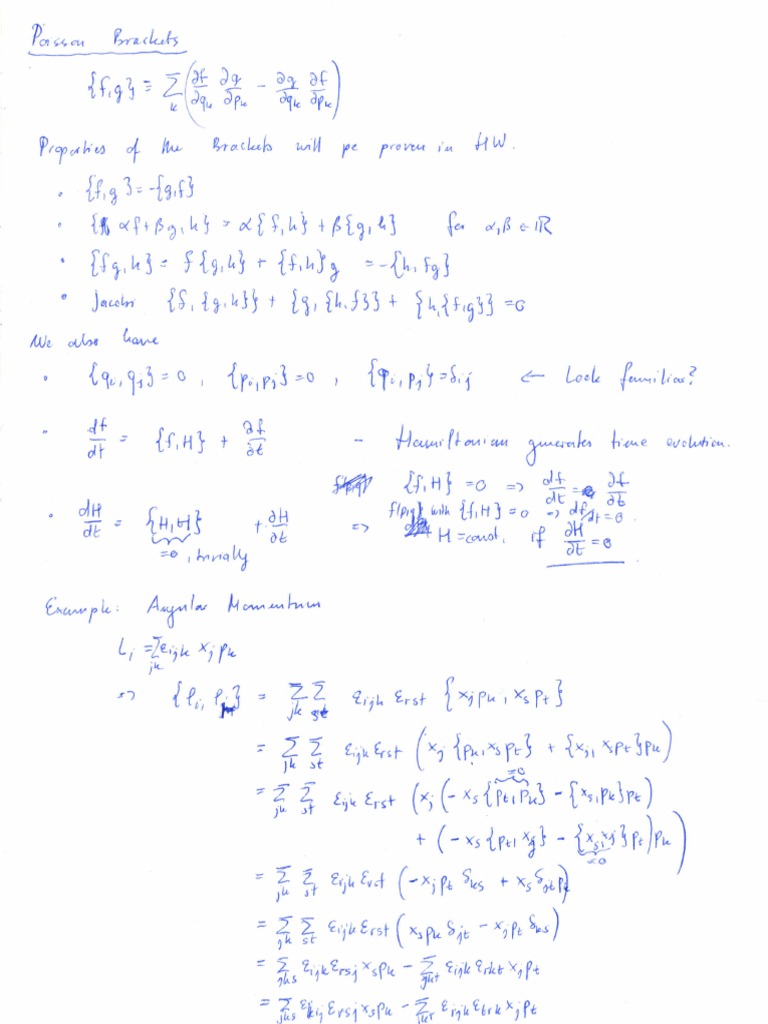 Poisson Brackets
{f,g} ≡ Σ_k (∂f/∂q_k ∂g/∂p_k − ∂g/∂q_k ∂f/∂p_k)
Properties of the Brackets will pe proven in HW.
• {f,g} = -{g,f}
• {αf+βg,h} = α{f,h} + β{g,h} for α,β ∈ ℝ
• {fg,h} = f{g,h} + {f,h}g = -{h,fg}
• Jacobi {f,{g,h}} + {g,{h,f}} + {h,{f,g}} = 0
We also have
• {q_i,q_j} = 0 , {p_i,p_j} = 0 , {q_i,p_j} = δ_ij ← Look familiar?
• df/dt = {f,H} + ∂f/∂t – Hamiltonian generates time evolution.
{f,H} = 0 => df/dt = ∂f/∂t
f(p,q) with {f,H} = 0 => df/dt = 0.
• dH/dt = {H,H} + ∂H/∂t => H = const. if ∂H/∂t = 0
=0, trivially
Example: Angular Momentum
L_i = Σ_jk ε_ijk x_j p_k
=> {l_i, l_r} = Σ_jk Σ_st ε_ijk ε_rst {x_j p_k, x_s p_t}
= Σ_jk Σ_st ε_ijk ε_rst (x_j {p_k, x_s p_t} + {x_j, x_s p_t} p_k)
= Σ_jk Σ_st ε_ijk ε_rst (x_j (-x_s {p_t, p_k} - {x_s, p_k} p_t)
=0
+ (-x_s {p_t, x_j} - {x_s, x_j} p_t) p_k)
=0
= Σ_jk Σ_st ε_ijk ε_rst (-x_j p_t δ_ks + x_s δ_jt p_k)
= Σ_jk Σ_st ε_ijk ε_rst (x_s p_k δ_jt - x_j p_t δ_ks)
= Σ_jks ε_ijk ε_rsj x_s p_k - Σ_jkt ε_ijk ε_rkt x_j p_t
= Σ_jks ε_kij ε_rsj x_s p_k - Σ_jkt ε_ijk ε_trk x_j p_t